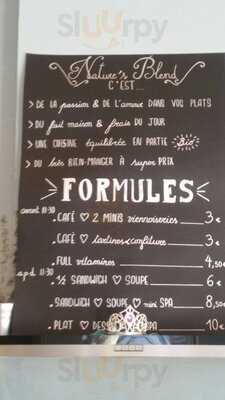 Sluurpy
Nature's Blend
C'EST...
> DE LA passion & DE L'amour DANS VOS PLATS
> DU fait maison & frais DU JOUR
> UNE CUISINE équilibrée EN PARTIE Bio
> DU très BIEN-MANGER À super PRIX
FORMULES
avant 11:30
. CAFÉ ♡ 2 MINIS viennoiseries 3€
. CAFÉ ♡ tartines & confiture 3€
. FULL vitamines 4,50€
apd 11:30
. ½ SANDWICH ♡ SOUPE 6€
. SANDWICH ♡ SOUPE ♡ mini SPA 8,50€
. PLAT ♡ SPA 10€
Sluurpy